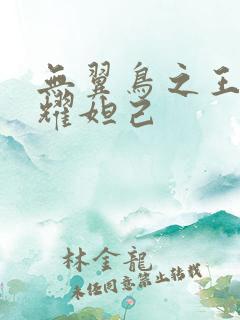 無翼鳥之王
耀妲己
林金龍
未任同意禁止转载